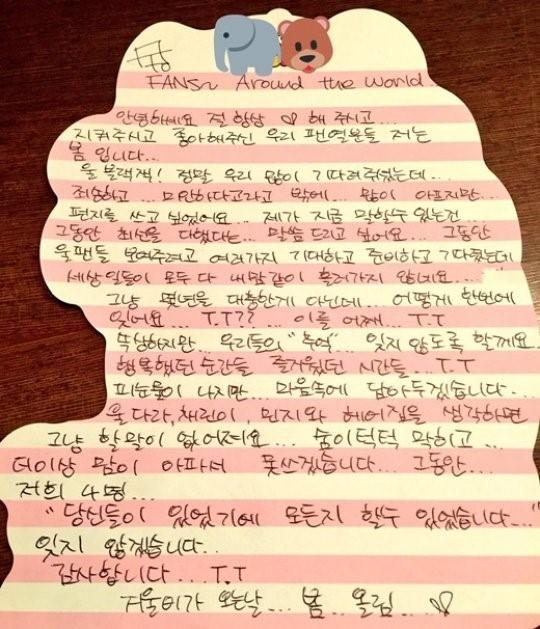 FANS~ Around the World
안녕하세요 절 항상 ♡ 해 주시고...
지켜주시고 좋아해주신 우리 팬 여러분들 저는
봄 입니다...
울 블랙잭! 정말 우리 많이 기다려주셨는데...
죄송하고... 미안하다고라고 밖에... 많이 아프지만...
편지를 쓰고 싶었어요... 제가 지금 말할수 있는건...
그동안 최선을 다했다는... 말씀 드리고 싶어요... 그동안
울팬들 보여주려고 여러가지 기대하고 준비하고 기다렸는데
세상일들이 모두 다 내맘같이 흘러가지 않네요...
그냥 몇년을 대충한게 아닌데... 어떻게 한번에
잊어요... T.T?? ... 이를 어째... T.T
속상하지만... 우리들의 "추억"... 잊지 않도록 할께요
행복했던 순간들 즐거웠던 시간들... T.T
피눈물이 나지만... 마음속에 담아두겠습니다...
울 다라, 채린이, 민지와 헤어짐을 생각하면
그냥 할말이 없어져요... 숨이턱턱 막히고...
더이상 맘이 아파서 못쓰겠습니다... 그동안...
저희 4명...
"당신들이 있었기에 모든지 할수 있었습니다..."
잊지 않겠습니다..
감사합니다... T.T
겨울비가 오는날... 봄.. 올림... ♡